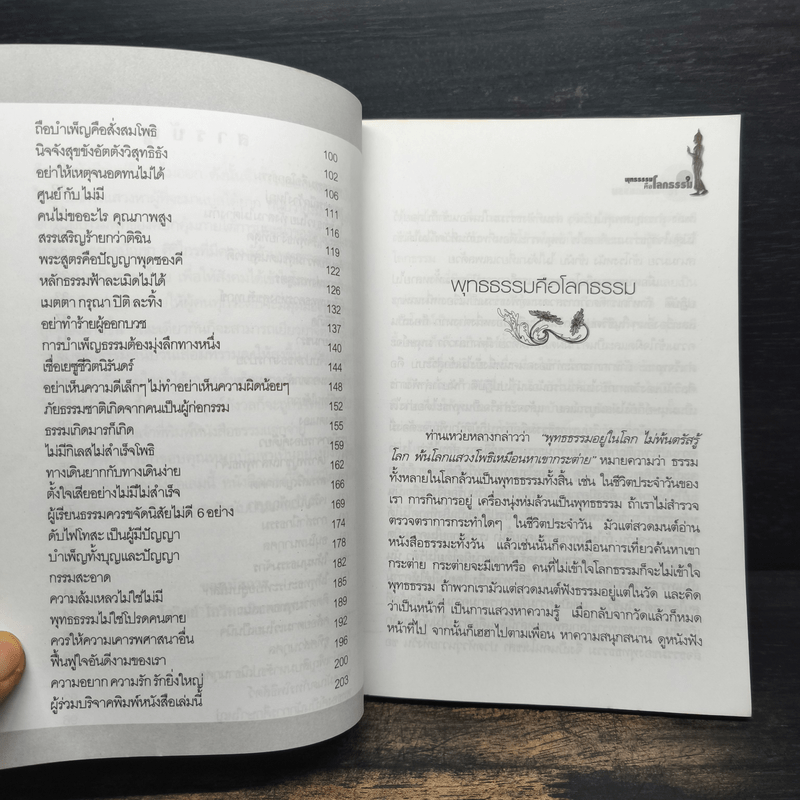 ถือบำเพ็ญคือสั่งสมโพธิ
นิจจังสุขขังอัตตังวิสุทธิธัง 100
อย่าให้เหตุจนอดทนไม่ได้ 102
ศูนย์ กับ ไม่มี 106
คนไม่ขออะไร คุณภาพสูง 111
สรรเสริญร้ายกว่าติฉิน 116
พระสูตรคือปัญญาพุดของคี 119
หลักธรรมฟ้าละเมิดไม่ได้ 122
เมตตา กรุณา ปิติ ละทิ้ง 126
อย่าทำร้ายผู้ออกบวช 132
การบำเพ็ญธรรมต้องมุ่งลึกทางหนึ่ง 137
เชื่อเยซูชีวิตนิรันดร์ 140
อย่าเห็นความดีเล็กๆ ไม่ทำอย่าเห็นความผิดน้อยๆ 144
ภัยธรรมชาติเกิดจากคนเป็นผู้ก่อกรรม 148
ธรรมเกิดมารก็เกิด 152
ไม่มีกิเลสไม่สำเร็จโพธิ 155
ทางเดินยากกับทางเดินง่าย 159
ตั้งใจเสียอย่างไม่มีไม่สำเร็จ 162
ผู้เรียนธรรมควรขจัดนิสัยไม่ดี 6 อย่าง 166
ดับไฟโทสะ เป็นผู้มีปัญญา 169
บำเพ็ญทั้งบุญและปัญญา 174
กรรมสะอาด 178
ความล้มเหลวไม่ใช่ไม่มี 182
พุทธธรรมไม่ใช่โปรดคนตาย 185
ควรให้ความเคารพศาสนาอื่น 189
ฟื้นฟูใจอันดีงามของเรา 192
ความอยาก ความรัก รักยิ่งใหญ่ 196
ผู้ร่วมบริจาคพิมพ์หนังสือเล่มนี้ 200
203
พุทธธรรม
คือโลกธรรม
พุทธธรรมคือโลกธรรม
ท่านเหว่ยหลางกล่าวว่า "พุทธธรรมอยู่ในโลก ไม่พ้นตรัสรู้
โลก พ้นโลกแสวงโพธิเหมือนหาเขากระต่าย" หมายความว่า ธรรม
ทั้งหลายในโลกล้วนเป็นพุทธธรรมทั้งสิ้น เช่น ในชีวิตประจำวันของ
เรา การกินการอยู่ เครื่องนุ่งห่มล้วนเป็นพุทธธรรม ถ้าเราไม่สำรวจ
ตรวจตราการกระทำใดๆ ในชีวิตประจำวัน มัวแต่สวดมนต์อ่าน
หนังสือธรรมะทั้งวัน แล้วเช่นนั้นก็คงเหมือนการเที่ยวค้นหาเขา
กระต่าย กระต่ายจะมีเขาหรือ คนที่ไม่เข้าใจโลกธรรมก็จะไม่เข้าใจ
พุทธธรรม ถ้าพวกเรามัวแต่สวดมนต์ฟังธรรมอยู่แต่ในวัด และคิด
ว่าเป็นหน้าที่ เป็นการแสวงหาความรู้ เมื่อกลับจากวัดแล้วก็หมด
หน้าที่ไป จากนั้นก็เฮฮาไปตามเพื่อน หาความสนุกสนาน ดูหนังฟัง